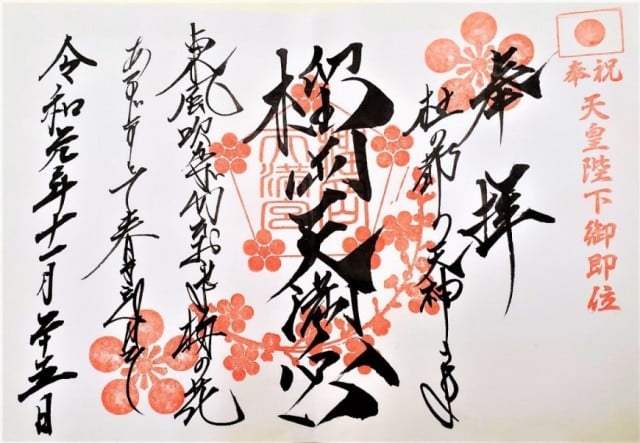 奉祝
天皇陛下御即位
奉拝
杜の都の天神さま
榴岡天満宮
東風吹かば匂ひおこせよ梅の花
あるじなしとて春な忘れそ
令和元年十一月廿五日